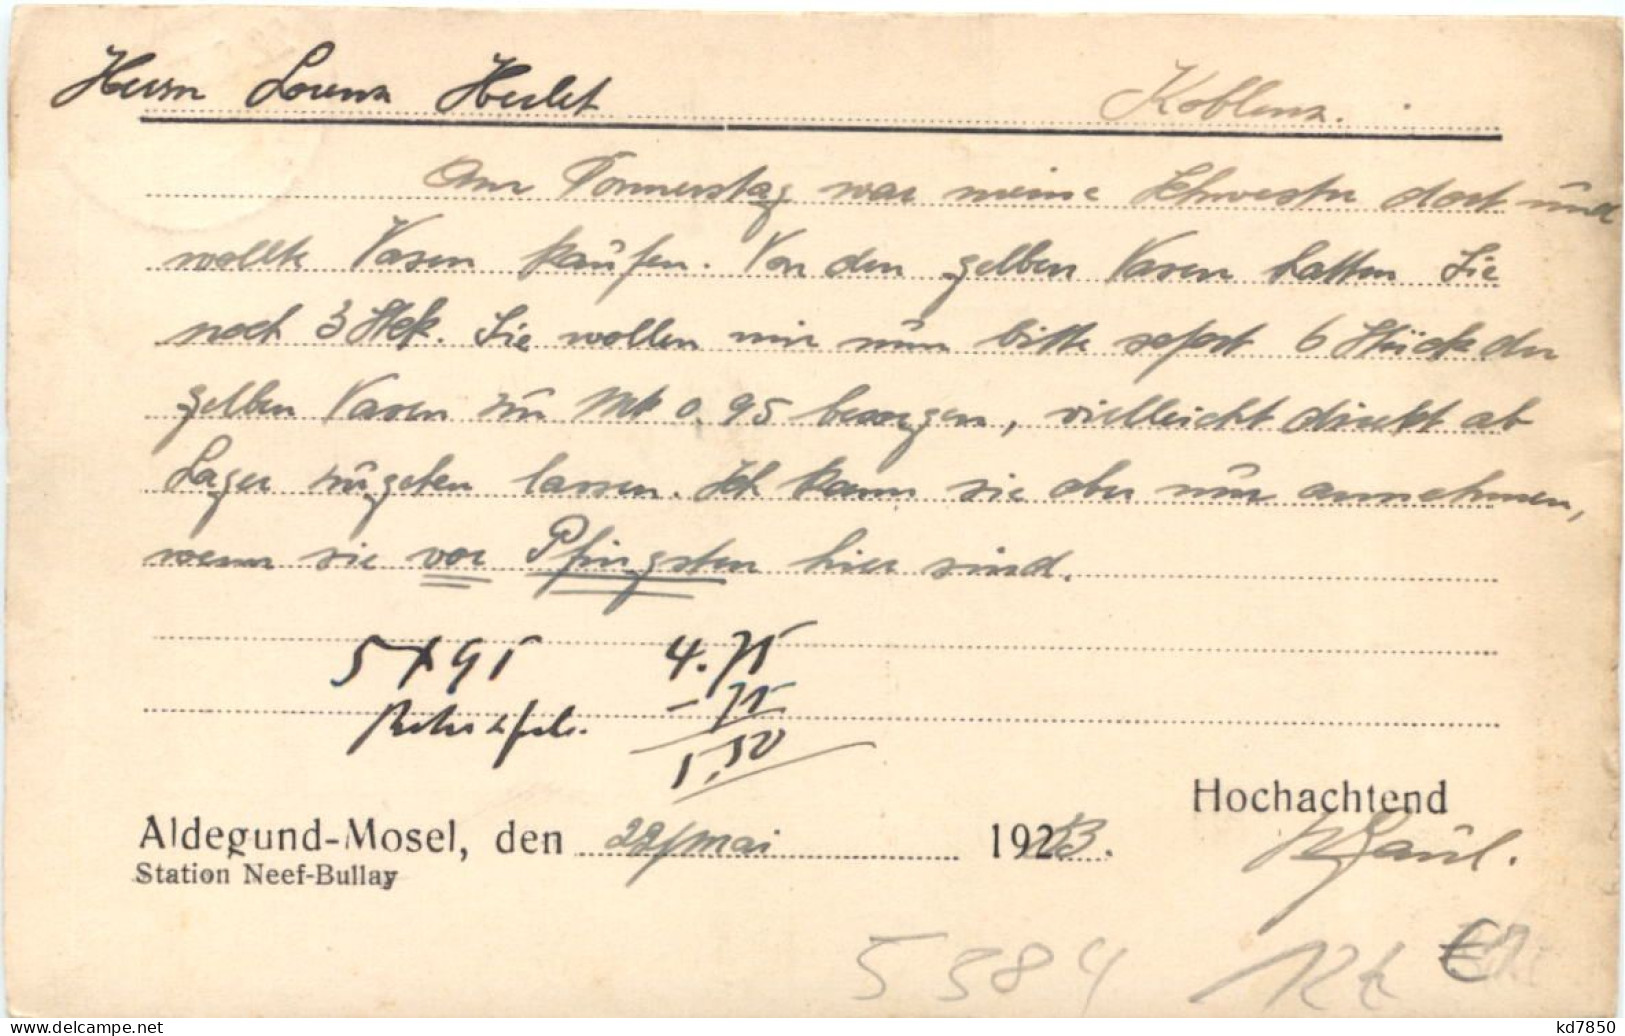 Herrn Lorenz Herlet Koblenz.
Am Donnerstag war meine Schwester dort und
wollte Vasen kaufen. Von den gelben Vasen hatten Sie
noch 3 Stck. Sie wollen mir nun bitte sofort 6 Stück der
gelben Vasen zu Mk 0.95 besorgen, vielleicht direkt ab
Lager zugehen lassen. Ich kann sie aber nur annehmen,
wenn sie vor Pfingsten hier sind.
5 x 95 4.75
-.75
5.50
Hochachtend
Aldegund-Mosel, den 22/Mai 1923.
Station Neef-Bullay
5384 12 €
kd7850